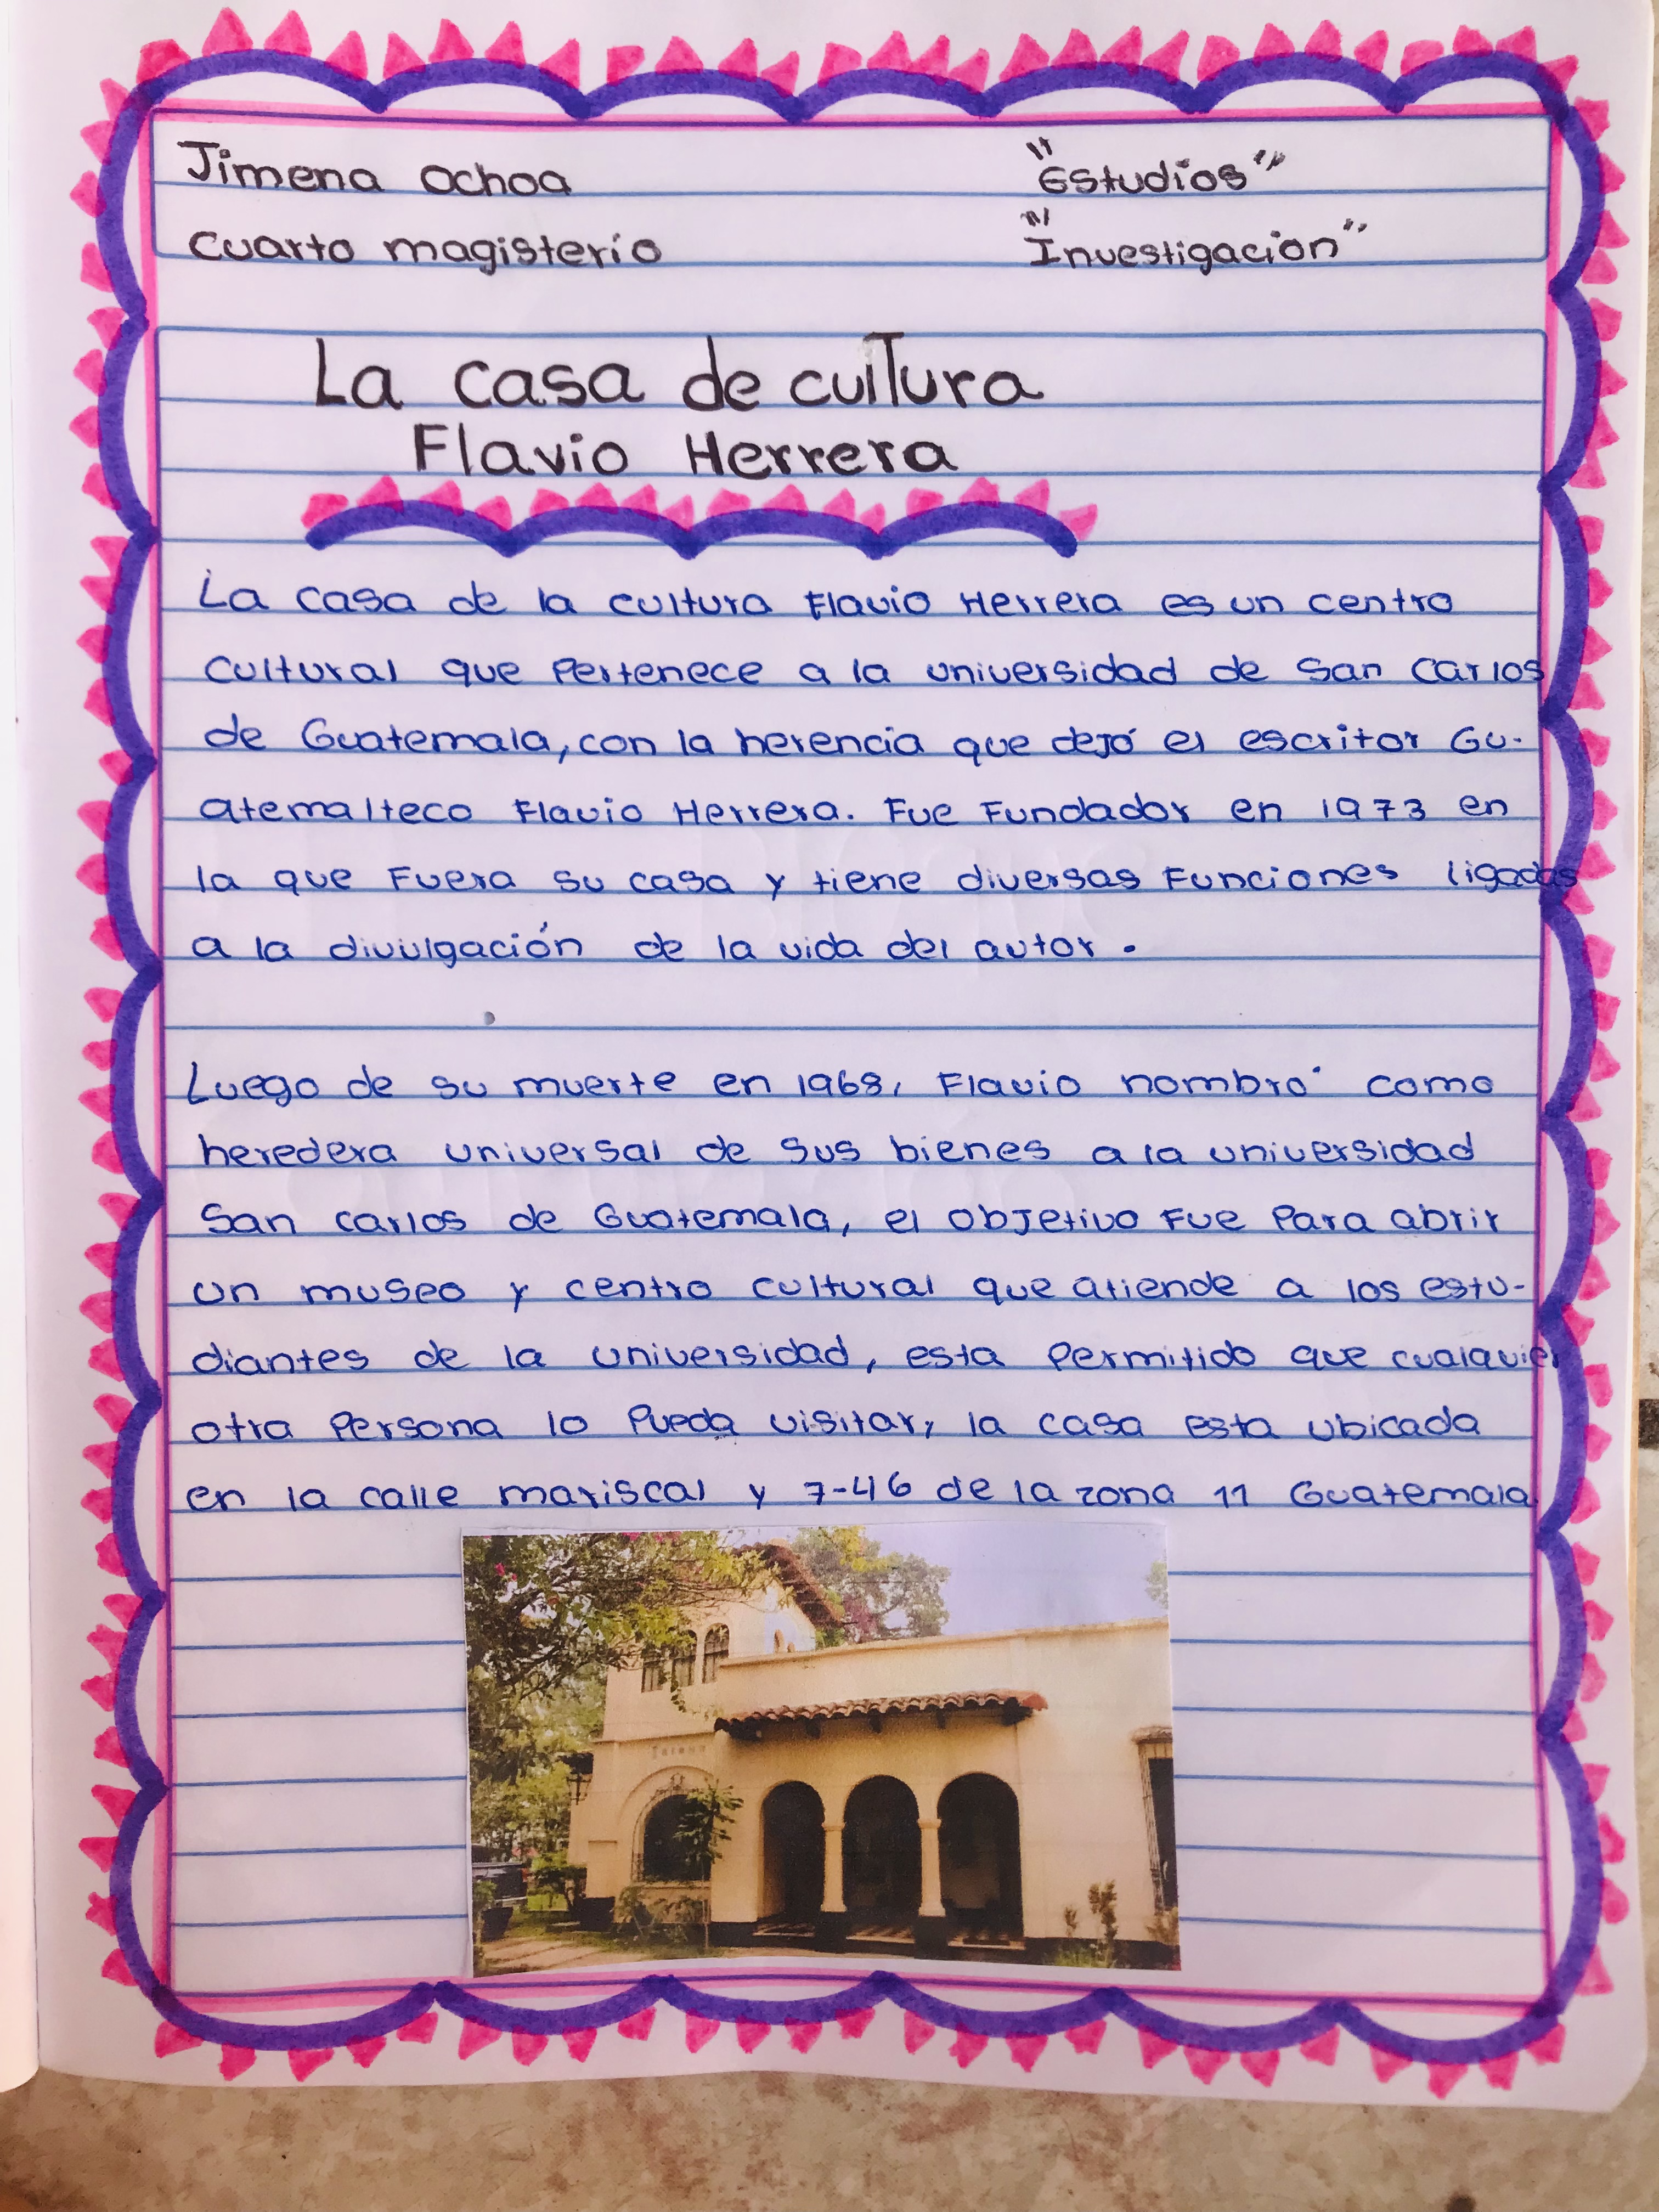 Jimena Ochoa "Estudios"
Cuarto magisterio "Investigacion"
La casa de cultura
Flavio Herrera
La casa de la cultura Flavio Herrera es un centro
cultural que pertenece a la universidad de San Carlos
de Guatemala, con la herencia que dejó el escritor Gu-
atemalteco Flavio Herrera. Fue Fundador en 1973 en
la que Fuera su casa y tiene diversas Funciones ligadas
a la divulgación de la vida del autor.
Luego de su muerte en 1968, Flavio nombró como
heredera universal de sus bienes a la universidad
San Carlos de Guatemala, el objetivo Fue Para abrir
un museo y centro cultural que atiende a los estu-
diantes de la universidad, esta Permitido que cualquier
otra Persona lo Pueda visitar, la casa esta ubicada
en la calle mariscal y 7-46 de la zona 11 Guatemala